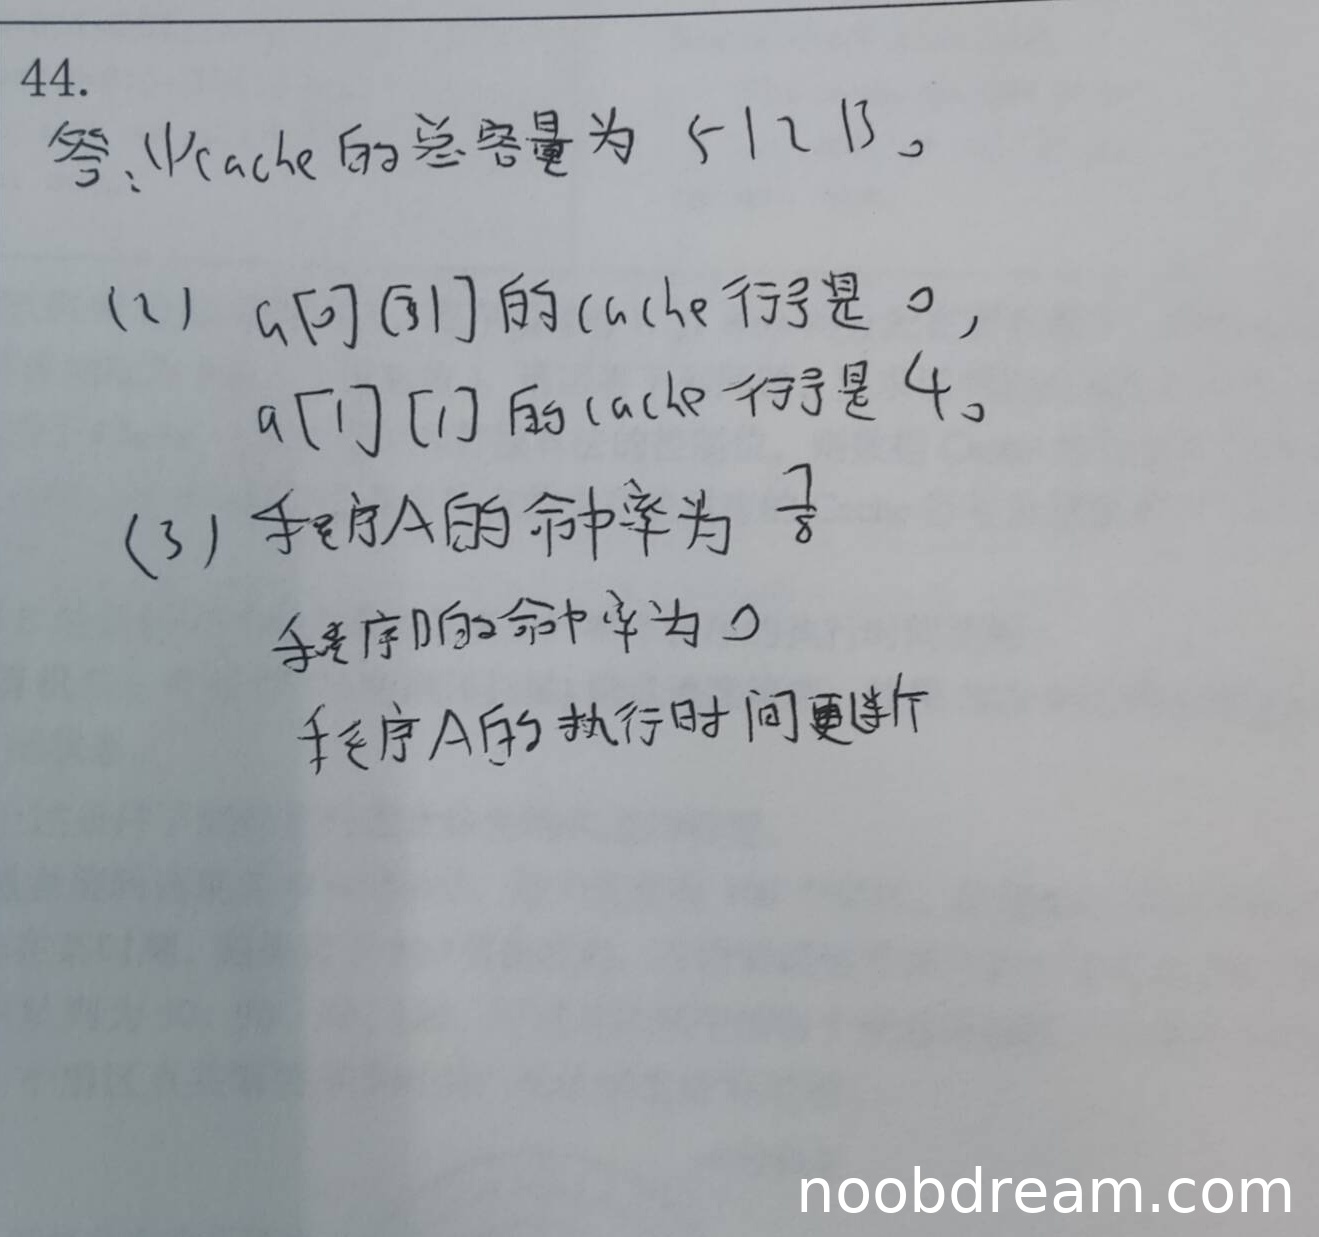 44.
答:(1)cache的总容量为 512B。
(2) a[0][31]的cache行号是 0,
a[1][1]的cache行号是 4。
(3) 程序A的命中率为 7/8
程序B的命中率为 0
程序A的执行时间更短
noobdream.com